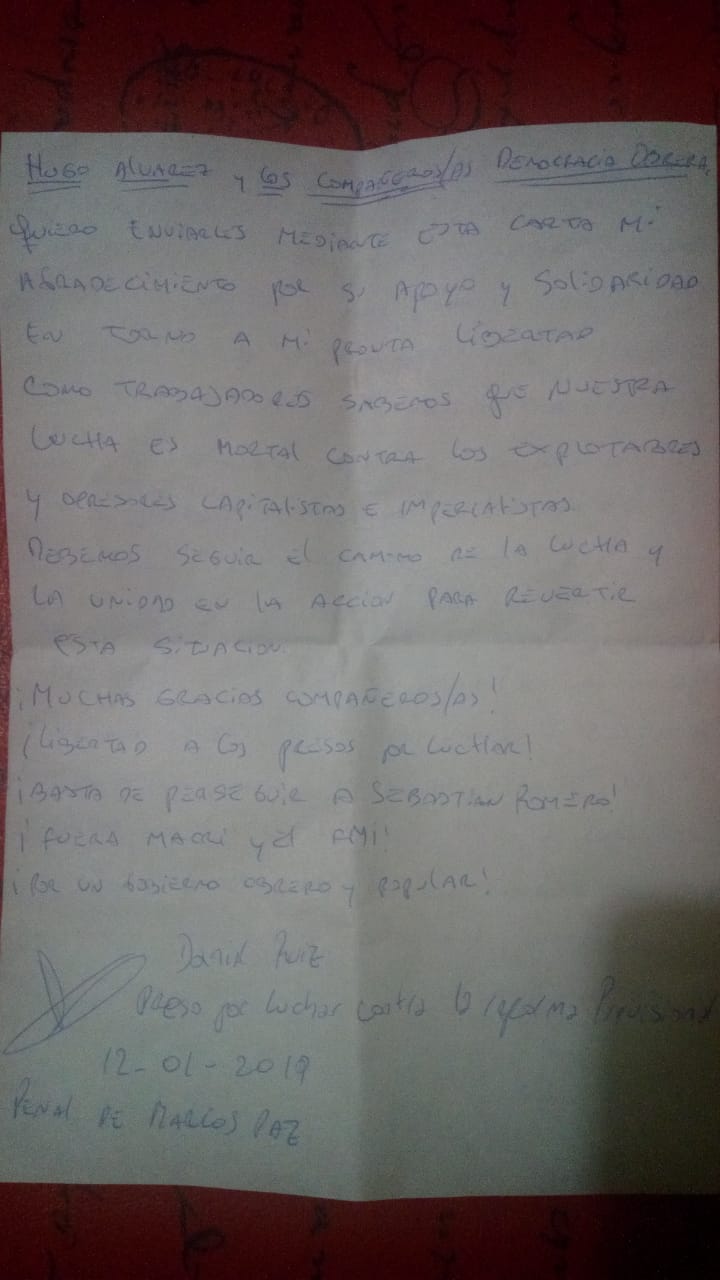 HUGO ALVAREZ y LOS COMPAÑEROS/AS DEMOCRACIA OBRERA,
QUIERO ENVIARLES MEDIANTE ESTA CARTA MI
AGRADECIMIENTO POR SU APOYO Y SOLIDARIDAD
EN TORNO A MI PRONTA LIBERTAD
COMO TRABAJADORES SABEMOS QUE NUESTRA
LUCHA ES MORTAL CONTRA LOS EXPLOTADORES
Y OPRESORES CAPITALISTAS E IMPERIALISTAS.
DEBEMOS SEGUIR EL CAMINO DE LA LUCHA Y
LA UNIDAD EN LA ACCION PARA REVERTIR
ESTA SITUACION.
¡MUCHAS GRACIAS COMPAÑEROS/AS!
¡LIBERTAD A LOS PRESOS POR LUCHAR!
¡BASTA DE PERSEGUIR A SEBASTIAN ROMERO!
¡FUERA MACRI Y EL FMI!
¡POR UN GOBIERNO OBRERO Y POPULAR!
Daniel Ruiz
Preso por luchar contra la reforma Previsional
12-01-2019
PENAL DE MARCOS PAZ